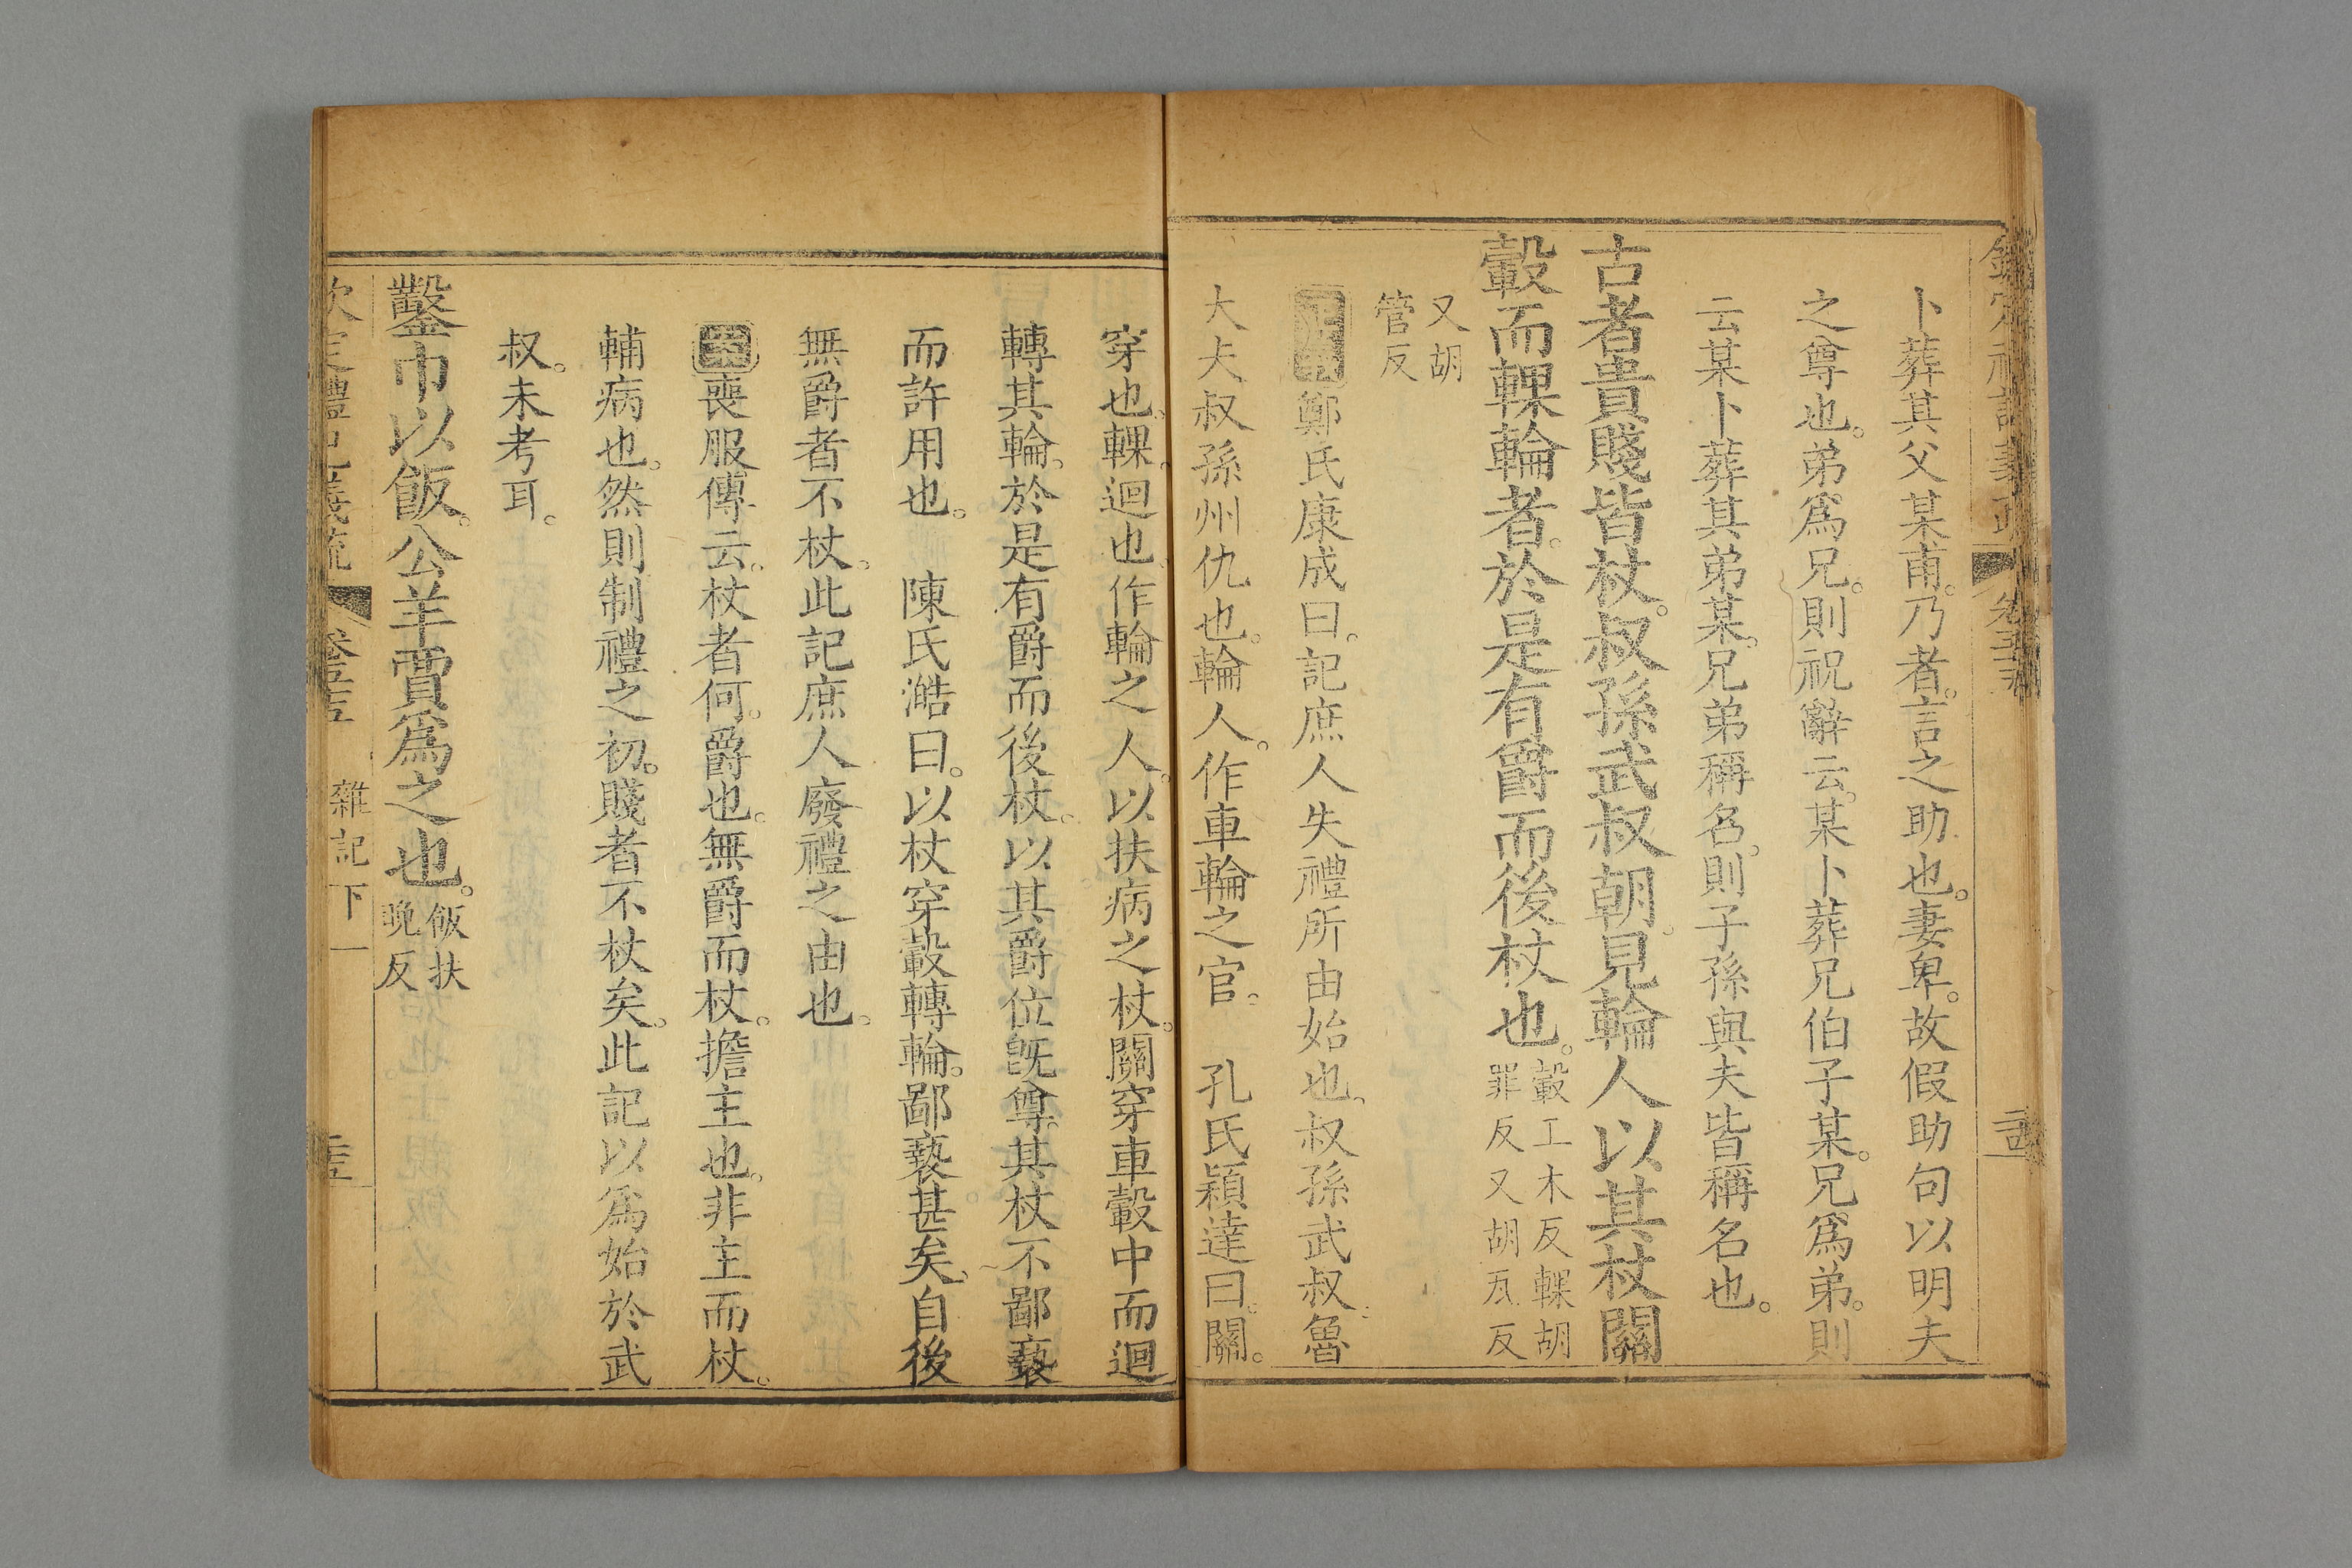 卜葬其父某甫。乃者。言之助也。妻卑。故假助句以明夫
之尊也。弟爲兄。則祝辭云。某卜葬兄伯子某。兄爲弟。則
云某卜葬其弟某。兄弟稱名。則子孫與夫皆稱名也。
古者貴賤皆杖。叔孫武叔朝。見輪人以其杖關
轂而輠輪者。於是有爵而後杖也。轂工木反輠胡罪反又胡瓦反
又胡管反
鄭氏康成曰。記庶人失禮所由始也。叔孫武叔。魯
大夫叔孫州仇也。輪人。作車輪之官。 孔氏穎達曰。關。
穿也。輠。迴也。作輪之人。以扶病之杖。關穿車轂中而迴
轉其輪。於是有爵而後杖。以其爵位旣尊。其杖不鄙褻
而許用也。 陳氏澔曰。以杖穿轂轉輪。鄙褻甚矣。自後
無爵者不杖。此記庶人廢禮之由也。
案喪服傳云。杖者何。爵也。無爵而杖。擔主也。非主而杖。
輔病也。然則制禮之初。賤者不杖矣。此記以爲始於武
叔。未考耳。
鑿巾以飯。公羊賈爲之也。飯扶晚反
雜記下一